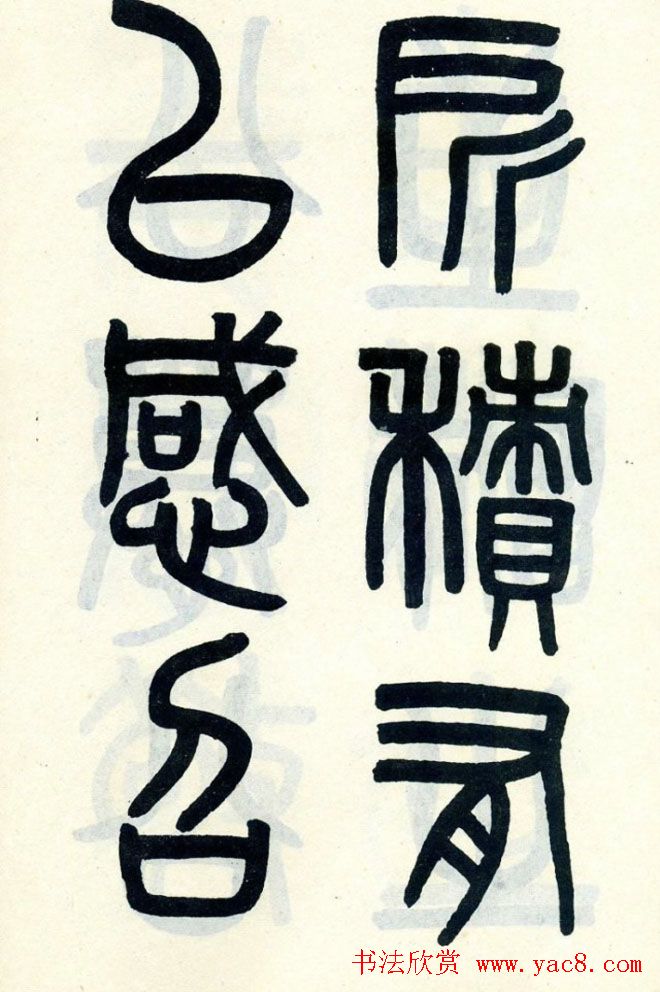 所積有
㠯感召
书法欣赏 www.yac8.com